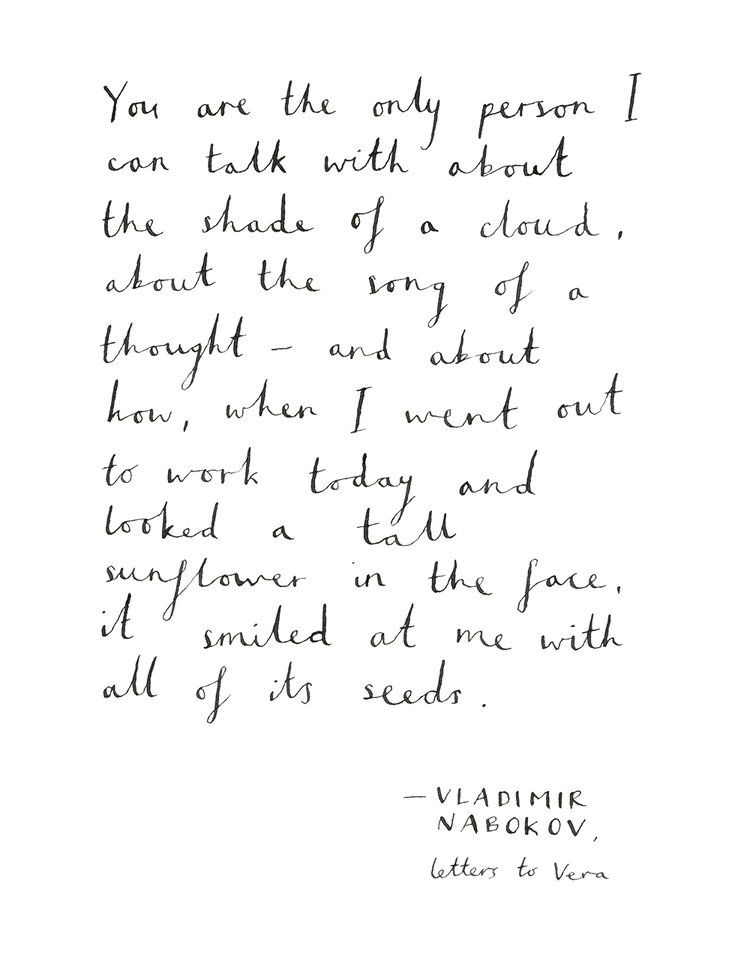 You are the only person I
can talk with about
the shade of a cloud,
about the song of a
thought – and about
how, when I went out
to work today and
looked a tall
sunflower in the face,
it smiled at me with
all of its seeds.
– VLADIMIR
NABOKOV,
letters to Vera